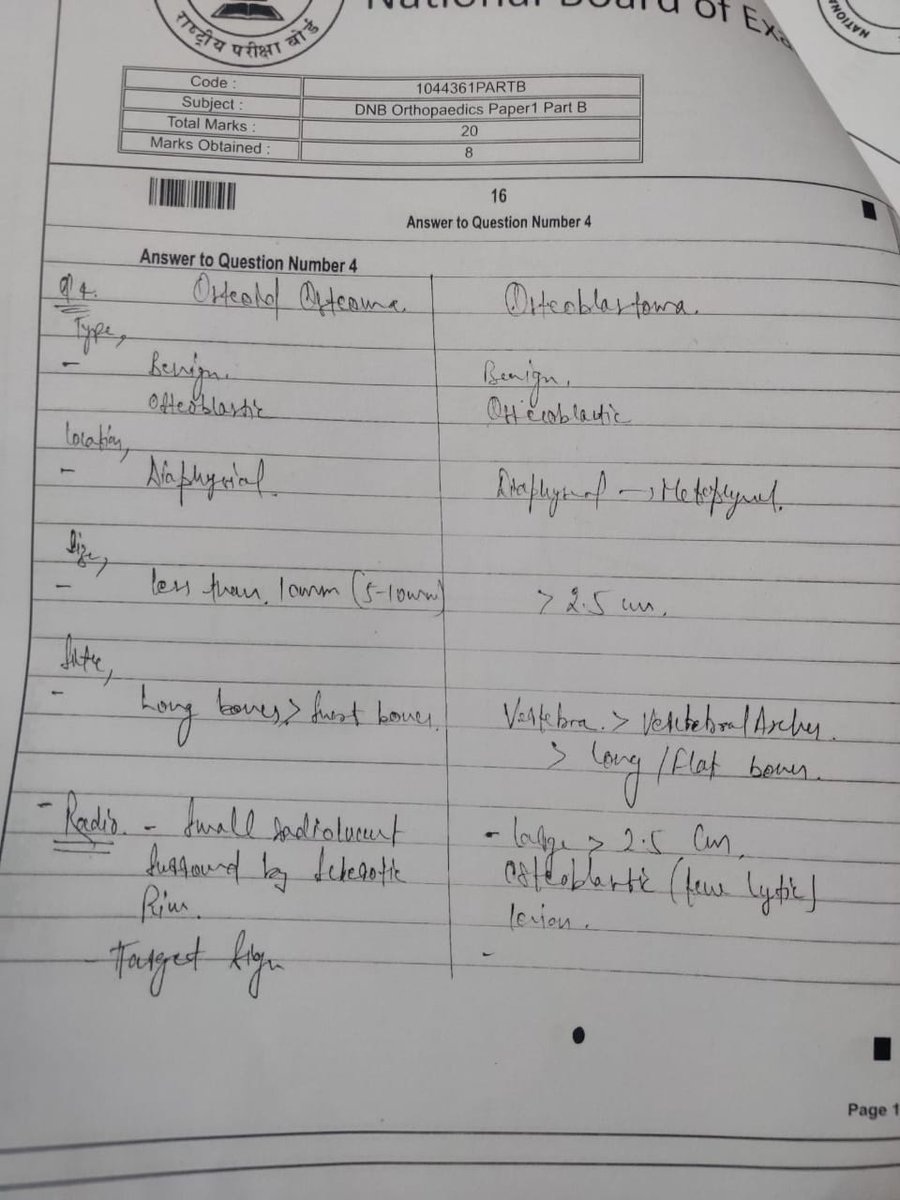 National Board of Exa
राष्ट्रीय परीक्षा बोर्ड
NATIONA
Code : 1044361PARTB
Subject : DNB Orthopaedics Paper1 Part B
Total Marks : 20
Marks Obtained : 8
16
Answer to Question Number 4
Answer to Question Number 4
Q 4. Osteoid Osteoma. Osteoblastoma.
Type,
- Benign. Benign,
Osteoblastic Osteoblastic
Location,
- Diaphysial. Diaphyseal → Metaphyseal.
Size,
- less than 10mm (5-10mm) > 2.5 cm.
Site,
- Long bones > bones. Vertebra. > Vertebral Arches.
> Long / Flat bones.
- Radio. - Small radiolucent - large > 2.5 Cm,
surround by Sclerotic Osteoblastic (few lytic)
Rim. lesion.
- Target Sign -
Page 1